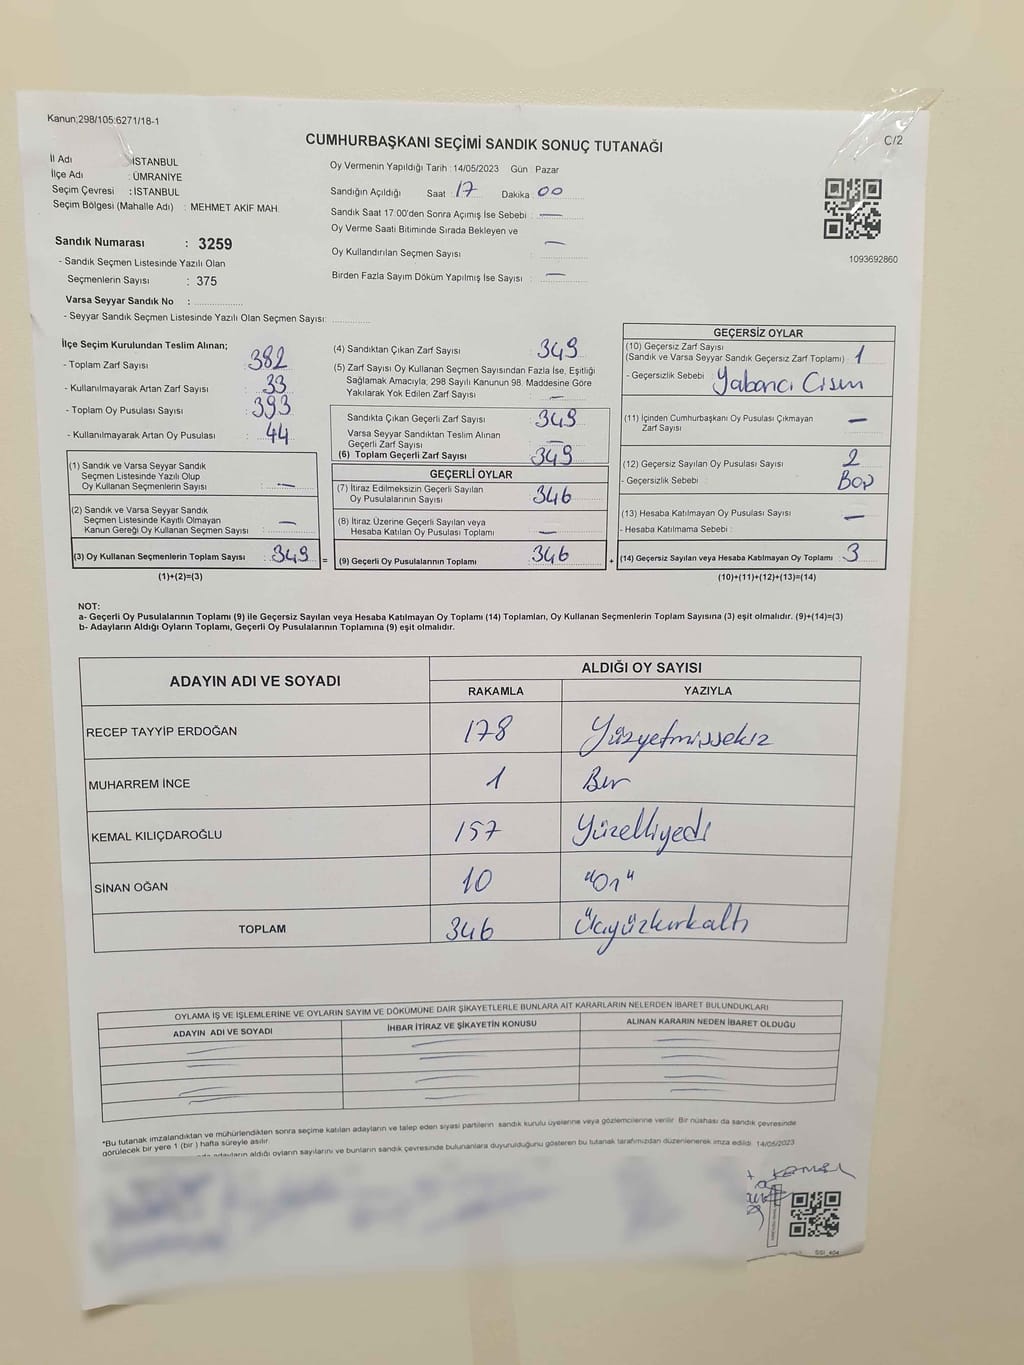 Kanun;298/105;6271/18-1
C/2
CUMHURBAŞKANI SEÇİMİ SANDIK SONUÇ TUTANAĞI
İl Adı : İSTANBUL
İlçe Adı : ÜMRANİYE
Seçim Çevresi : İSTANBUL
Seçim Bölgesi (Mahalle Adı) : MEHMET AKİF MAH.
Oy Vermenin Yapıldığı Tarih : 14/05/2023 Gün : Pazar
Sandığın Açıldığı Saat : 17 Dakika : 00
Sandık Saat 17:00'den Sonra Açımış İse Sebebi : —
Oy Verme Saati Bitiminde Sırada Bekleyen ve
Oy Kullandırılan Seçmen Sayısı : —
Birden Fazla Sayım Döküm Yapılmış İse Sayısı : —
1093692860
Sandık Numarası : 3259
- Sandık Seçmen Listesinde Yazılı Olan
Seçmenlerin Sayısı : 375
Varsa Seyyar Sandık No :
- Seyyar Sandık Seçmen Listesinde Yazılı Olan Seçmen Sayısı:
İlçe Seçim Kurulundan Teslim Alınan;
- Toplam Zarf Sayısı : 382
- Kullanılmayarak Artan Zarf Sayısı : 33
- Toplam Oy Pusulası Sayısı : 393
- Kullanılmayarak Artan Oy Pusulası : 44
(1) Sandık ve Varsa Seyyar Sandık
Seçmen Listesinde Yazılı Olup
Oy Kullanan Seçmenlerin Sayısı : —
(2) Sandık ve Varsa Seyyar Sandık
Seçmen Listesinde Kayıtlı Olmayan
Kanun Gereği Oy Kullanan Seçmen Sayısı : —
(3) Oy Kullanan Seçmenlerin Toplam Sayısı : 349
(1)+(2)=(3)
(4) Sandıktan Çıkan Zarf Sayısı : 349
(5) Zarf Sayısı Oy Kullanan Seçmen Sayısından Fazla İse, Eşitliği
Sağlamak Amacıyla; 298 Sayılı Kanunun 98. Maddesine Göre
Yakılarak Yok Edilen Zarf Sayısı : —
Sandıkta Çıkan Geçerli Zarf Sayısı : 349
Varsa Seyyar Sandıktan Teslim Alınan
Geçerli Zarf Sayısı : —
(6) Toplam Geçerli Zarf Sayısı : 349
GEÇERLİ OYLAR
(7) İtiraz Edilmeksizin Geçerli Sayılan
Oy Pusulalarının Sayısı : 346
(8) İtiraz Üzerine Geçerli Sayılan veya
Hesaba Katılan Oy Pusulası Toplamı : —
(9) Geçerli Oy Pusulalarının Toplamı : 346
GEÇERSİZ OYLAR
(10) Geçersiz Zarf Sayısı
(Sandık ve Varsa Seyyar Sandık Geçersiz Zarf Toplamı) : 1
- Geçersizlik Sebebi : Yabancı Cisim
(11) İçinden Cumhurbaşkanı Oy Pusulası Çıkmayan
Zarf Sayısı : —
(12) Geçersiz Sayılan Oy Pusulası Sayısı : 2
- Geçersizlik Sebebi : Boş
(13) Hesaba Katılmayan Oy Pusulası Sayısı : —
- Hesaba Katılmama Sebebi :
(14) Geçersiz Sayılan veya Hesaba Katılmayan Oy Toplamı : 3
(10)+(11)+(12)+(13)=(14)
NOT:
a- Geçerli Oy Pusulalarının Toplamı (9) ile Geçersiz Sayılan veya Hesaba Katılmayan Oy Toplamı (14) Toplamları, Oy Kullanan Seçmenlerin Toplam Sayısına (3) eşit olmalıdır. (9)+(14)=(3)
b- Adayların Aldığı Oyların Toplamı, Geçerli Oy Pusulalarının Toplamına (9) eşit olmalıdır.
ADAYIN ADI VE SOYADI
ALDIĞI OY SAYISI
RAKAMLA YAZIYLA
RECEP TAYYİP ERDOĞAN 178 Yüzyetmişsekiz
MUHARREM İNCE 1 Bir
KEMAL KILIÇDAROĞLU 157 Yüzelliyedi
SİNAN OĞAN 10 "On"
TOPLAM 346 Üçyüzkırkaltı
OYLAMA İŞ VE İŞLEMLERİNE VE OYLARIN SAYIM VE DÖKÜMÜNE DAİR ŞİKAYETLERLE BUNLARA AİT KARARLARIN NELERDEN İBARET BULUNDUKLARI
ADAYIN ADI VE SOYADI İHBAR İTİRAZ VE ŞİKAYETİN KONUSU ALINAN KARARIN NEDEN İBARET OLDUĞU
*Bu tutanak imzalandıktan ve mühürlendikten sonra seçime katılan adayların ve talep eden siyasi partilerin sandık kurulu üyelerine veya gözlemcilerine verilir. Bir nüshası da sandık çevresinde
görülecek bir yere 1 (bir) hafta süreyle asılır.
adayların aldığı oyların sayılarını ve bunların sandık çevresinde bulunanlara duyurulduğunu gösteren bu tutanak tarafımızdan düzenlenerek imza edildi. 14/05/2023
SSI_404